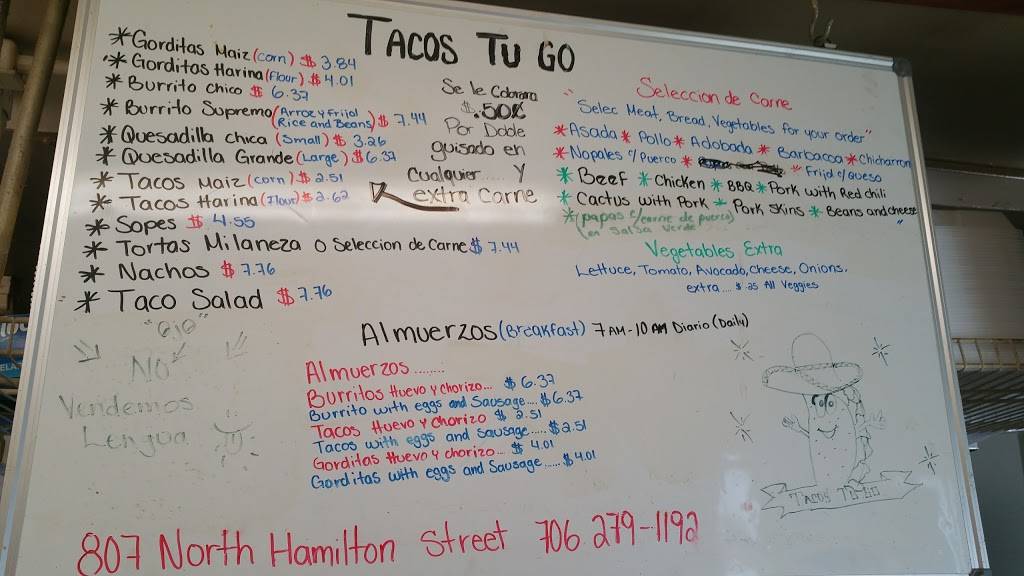 TACOS TU GO
*Gorditas Maiz (corn) $ 3.84
*Gorditas Harina (Flour) $ 4.01
*Burrito chico $ 6.37
*Burrito Supremo (Arroz y Frijol
Rice and Beans) $ 7.44
*Quesadilla chica (Small) $ 3.26
*Quesadilla Grande (Large) $6.37
*Tacos Maiz (corn) $ 2.51
*Tacos Harina (Flour) $ 2.62
*Sopes $ 4.55
*Tortas Milaneza o Seleccion de Carne $ 7.44
*Nachos $ 7.76
*Taco Salad $ 7.76
Se le Cobrara
$.50¢
Por Doble
guisado en
Cualquier Y
extra Carne
Seleccion de Carne
"Selec Meat, Bread, Vegetables for your order"
*Asada *Pollo *Adobada *Barbacoa *Chicharron
*Nopales c/Puerco * * Frijol c/queso
*Beef *Chicken *BBQ *Pork with Red chili
*Cactus with Pork *Pork Skins *Beans and cheese
*(papas c/carne de puerco)
(en Salsa Verde)
Vegetables Extra
Lettuce, Tomato, Avocado, Cheese, Onions.
extra.... $.25 All Veggies
NO
Vendemos
Lengua
Almuerzos (Breakfast) 7 AM-10 AM Diario (Daily)
Almuerzos........
Burritos Huevo y chorizo... $ 6.37
Burrito with eggs and Sausage.... $6.37
Tacos Huevo y Chorizo $ 2.51
Tacos with eggs and sausage..... $2.51
Gorditas Huevo y chorizo... $ 4.01
Gorditas with eggs and Sausage...... $4.01
TACOS TU GO
807 North Hamilton Street 706 279-1192